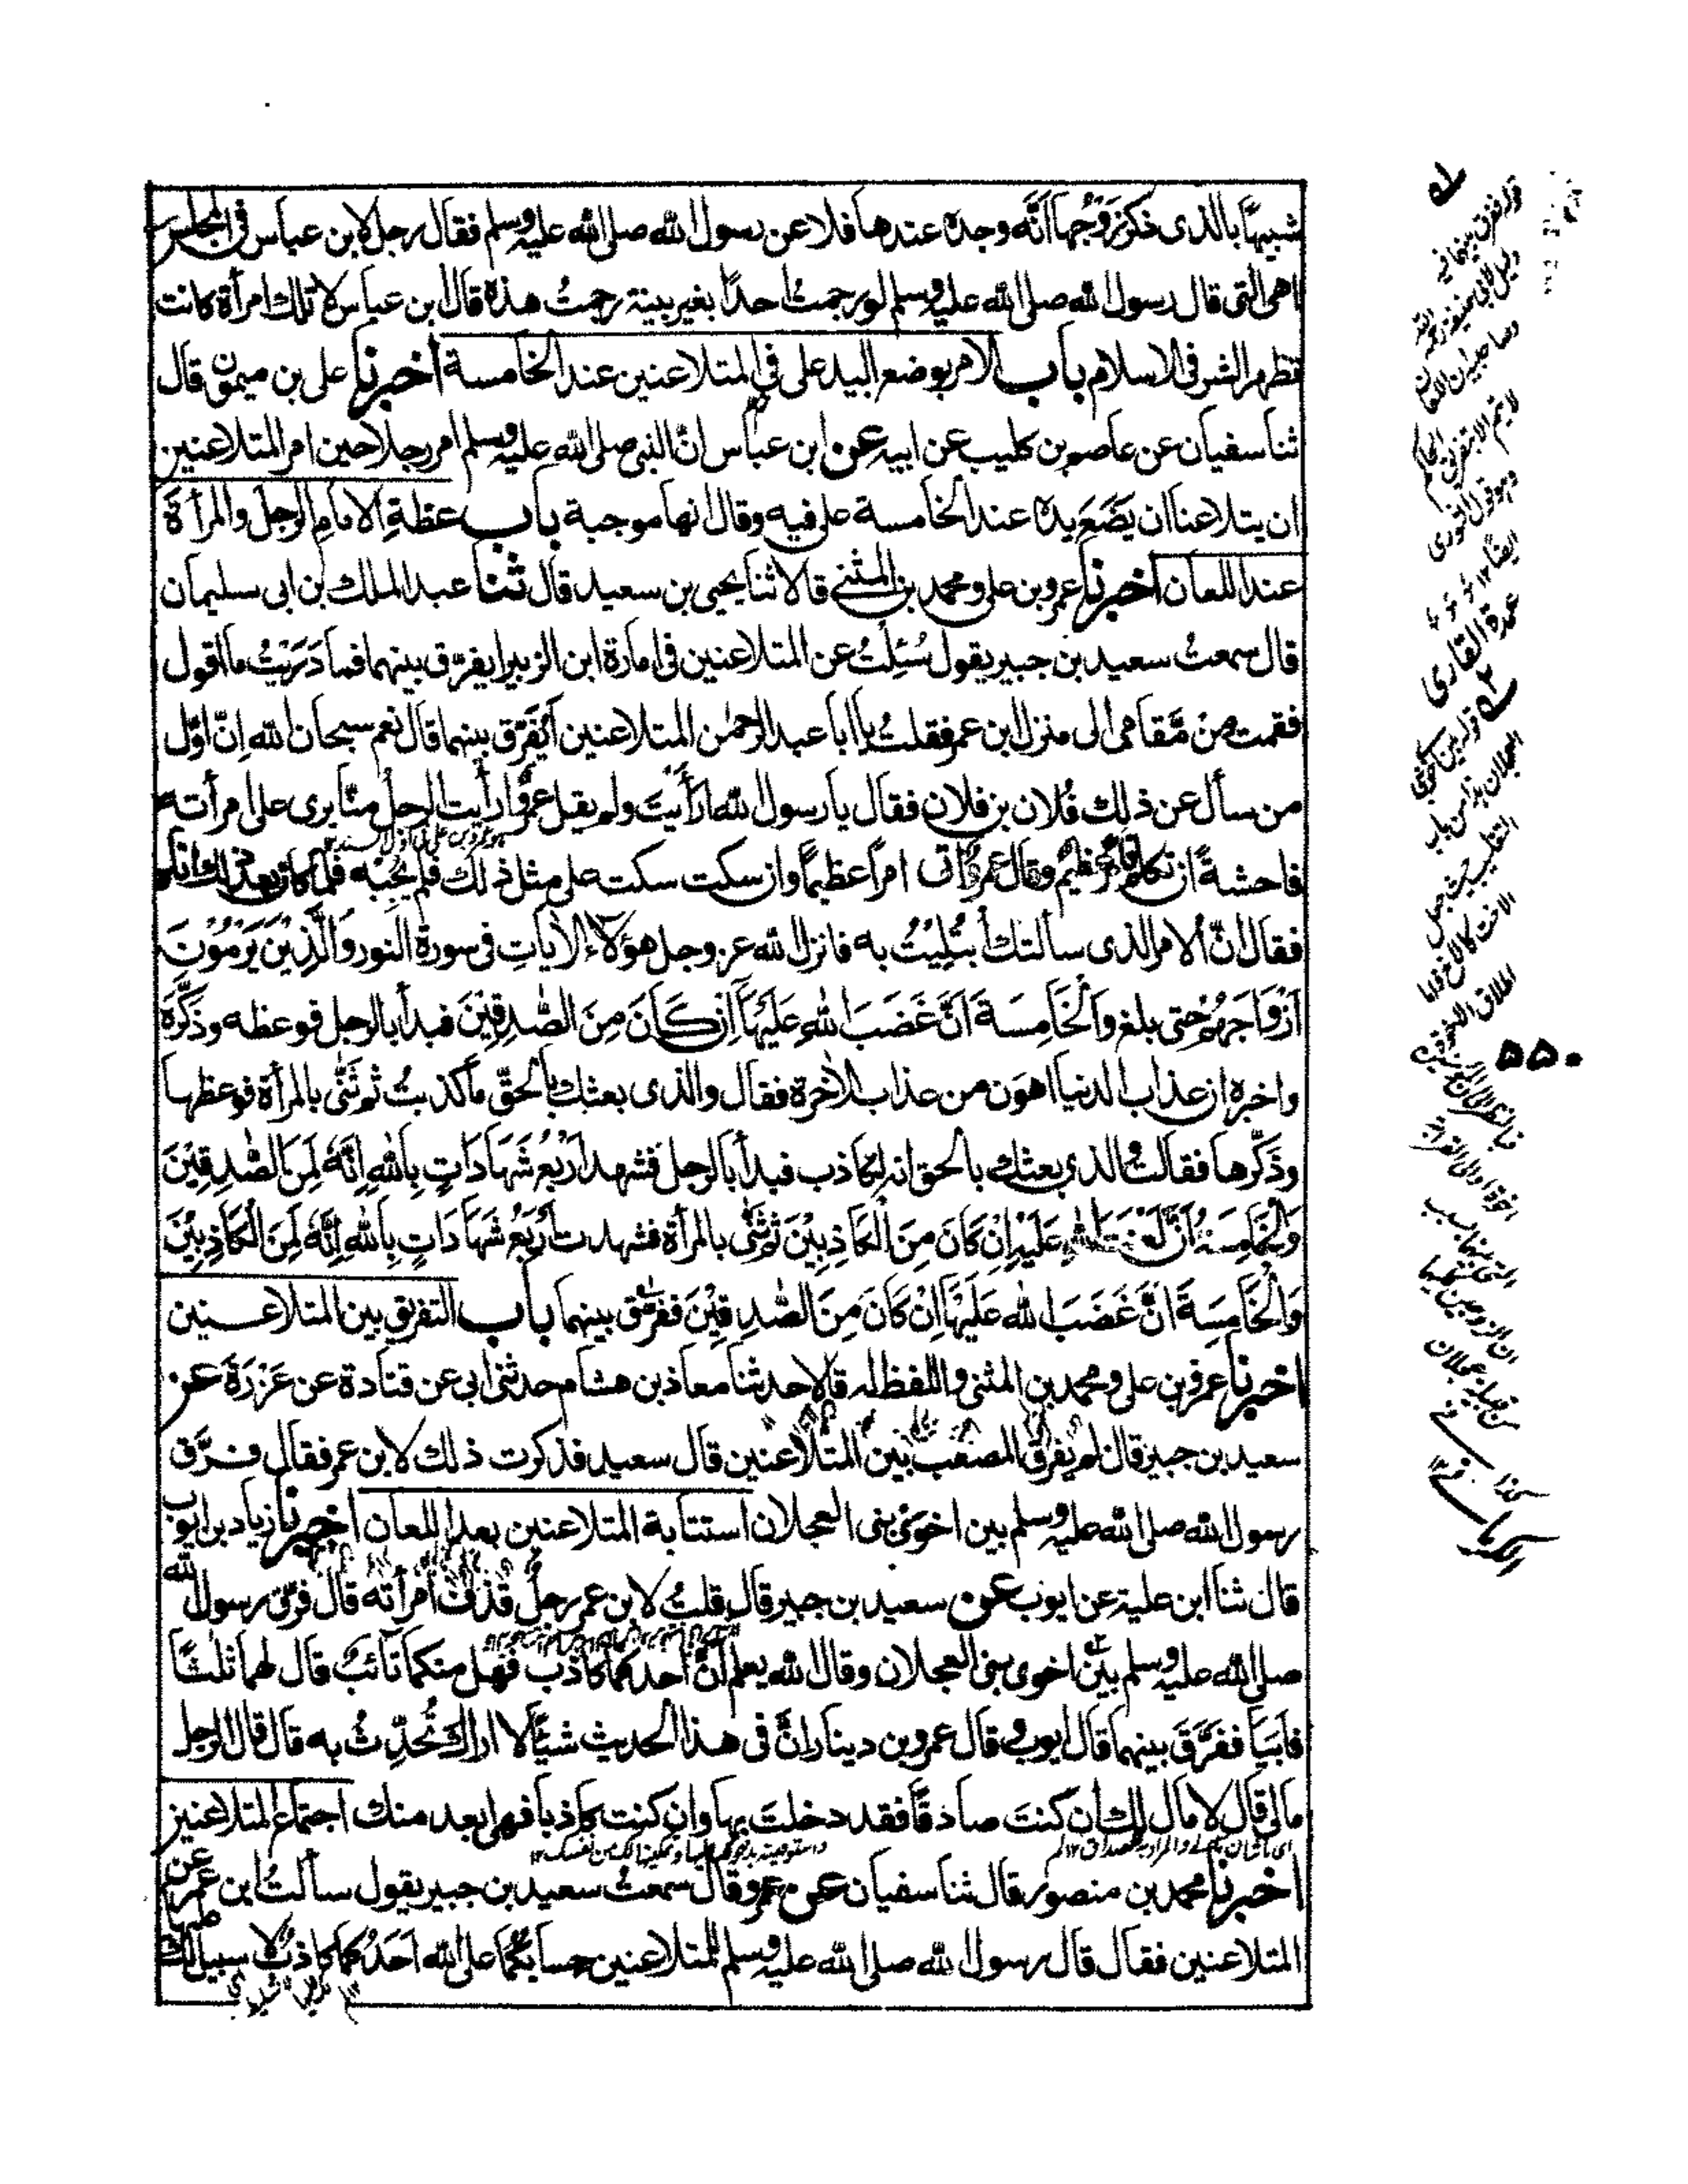 شبيهًا بالذى ذكر زَوْجُها أنَّه وجده عندها فلاعن رسول الله صلى الله عليه وسلم فقال رجل لابن عباس فى المجلس
اهى التى قال رسول الله صلى الله عليه وسلم لو رجمتُ احدًا بغير بينة رجمتُ هذه قال ابن عباس لا تلك امرأة كانت
تظهر الشر فى الاسلام باب الامر بوضع اليد على فى المتلاعنين عند الخامسة اخبرنا على بن ميمون قال
ثنا سفيان عن عاصم بن كليب عن ابيه عن ابن عباس انّ النبى صلى الله عليه وسلم امر رجلا حين امر المتلاعنين
ان يتلاعنا ان يَضَعَ يده عند الخامسة على فيه وقال انها موجبة باب عظةِ الامامِ الرجلَ والمرأةَ
عند اللعان اخبرنا عمرو بن على ومحمد بن المثنى قالا ثنا يحيى بن سعيد قال ثنا عبد الملك بن ابى سليمان
قال سمعتُ سعيد بن جبير يقول سُئِلتُ عن المتلاعنين فى امارة ابن الزبير ايفرّق بينهما فما دَرَيْتُ ما اقول
فقمت مِنْ مَّقامى الى منزل ابن عمر فقلتُ يا ابا عبد الرحمٰن المتلاعنين اَيُفَرَّق بينهما قال نعم سبحان الله اِنّ اوّل
من سأل عن ذلك فُلان بن فلان فقال يا رسول الله ارأيتَ ولم يقل عمرٌو ارأيت الرجلُ منّا يرى على امرأته
فاحشةً ان تكلم فامر عظيم وقال عمرٌو اتى امرًا عظيمًا وان سكت سكت على مثل ذلك فلم يُجِبْه فلما كان بعد ذلك اتاه
فقال انّ الامر الذى سالتك ابْتُلِيْتُ به فانزل الله عز وجل هؤلاء الآياتِ فى سورة النور وَالَّذِيْنَ يَرْمُوْنَ
اَزْوَاجَهُمْ حتى بلغ وَالْخَامِسَةَ اَنَّ غَضَبَ اللهِ عَلَيْهَا اِنْ كَانَ مِنَ الصّٰدِقِيْنَ فبدأ بالرجل فوعظه وذَكَّرَه
واخبره ان عذاب الدنيا اهوَن من عذاب الاٰخرة فقال والذى بعثك بالحقّ ما كذبتُ ثم ثَنّٰى بالمرأة فوعظها
وذَكَّرها فقالت والذى بعثك بالحق انه لكاذب فبدأ بالرجل فشهد اَرْبَعَ شَهَادَاتٍ بِاللهِ اِنَّهٗ لَمِنَ الصّٰدِقِيْنَ
وَالْخَامِسَةُ اَنَّ لَعْنَتَ اللهِ عَلَيْهِ اِنْ كَانَ مِنَ الْكَاذِبِيْنَ ثم ثَنّٰى بالمرأة فشهدت اَرْبَعَ شَهَادَاتٍ بِاللهِ اِنَّهٗ لَمِنَ الْكَاذِبِيْنَ
وَالْخَامِسَةَ اَنَّ غَضَبَ اللهِ عَلَيْهَا اِنْ كَانَ مِنَ الصّٰدِقِيْنَ ففرّق بينهما باب التفريق بين المتلاعنين
اخبرنا عمرو بن على ومحمد بن المثنى واللفظ له قالا حدثنا معاذ بن هشام حدثنى ابى عن قتادة عن عَزْرَةَ عن
سعيد بن جبير قال لم يفرق المصعب بين المتلاعنين قال سعيد فذكرت ذلك لابن عمر فقال فرَّق
رسول الله صلى الله عليه وسلم بين اخوَى بنى العجلان استتابة المتلاعنين بعد اللعان اخبرنا زياد بن ايوب
قال ثنا ابن علية عن ايوب عن سعيد بن جبير قال قلتُ لابن عمر رجلٌ قذف امرأته قال فرّق رسول الله
صلى الله عليه وسلم بين اخوى بنى العجلان وقال الله يعلم انّ احدكما كاذب فهل منكما تائبٌ قال لهما ثلٰثًا
فاَبَيَا ففَرَّقَ بينهما قال ايوب وقال عمرو بن دينار انَّ فى هذا الحديث شيئًا لا اراك تُحَدِّثُ به قال قال الرجل
مالى قال لا مال لك ان كنتَ صادقًا فقد دخلتَ بها وان كنت كاذبا فهى ابعد منك اجتماع المتلاعنين
اخبرنا محمد بن منصور قال ثنا سفيان عن عمرو قال سمعتُ سعيد بن جبير يقول سألتُ ابن عمر عن
المتلاعنين فقال قال رسول الله صلى الله عليه وسلم للمتلاعنين حسابكُما على الله اَحَدُكما كاذبٌ لا سبيل لك
عليها
عمدة القارى
۵۵۰